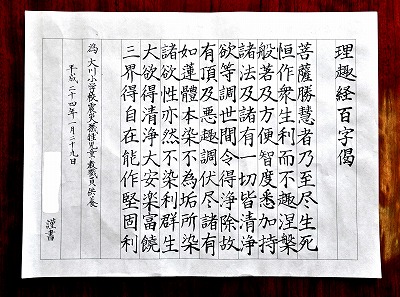 理趣経百字偈
菩薩勝慧者乃至尽生死
恒作衆生利而不趣涅槃
般若及方便智度悉加持
諸法及諸有一切皆清浄
欲等調世間令得浄除故
有頂及悪趣調伏尽諸有
如蓮体本染不為垢所染
諸欲性亦然不染利群生
大欲得清浄大安楽富饒
三界得自在能作堅固利
為 大川小学校震災犠牲児童・教職員供養
平成二十四年一月二十九日
謹書